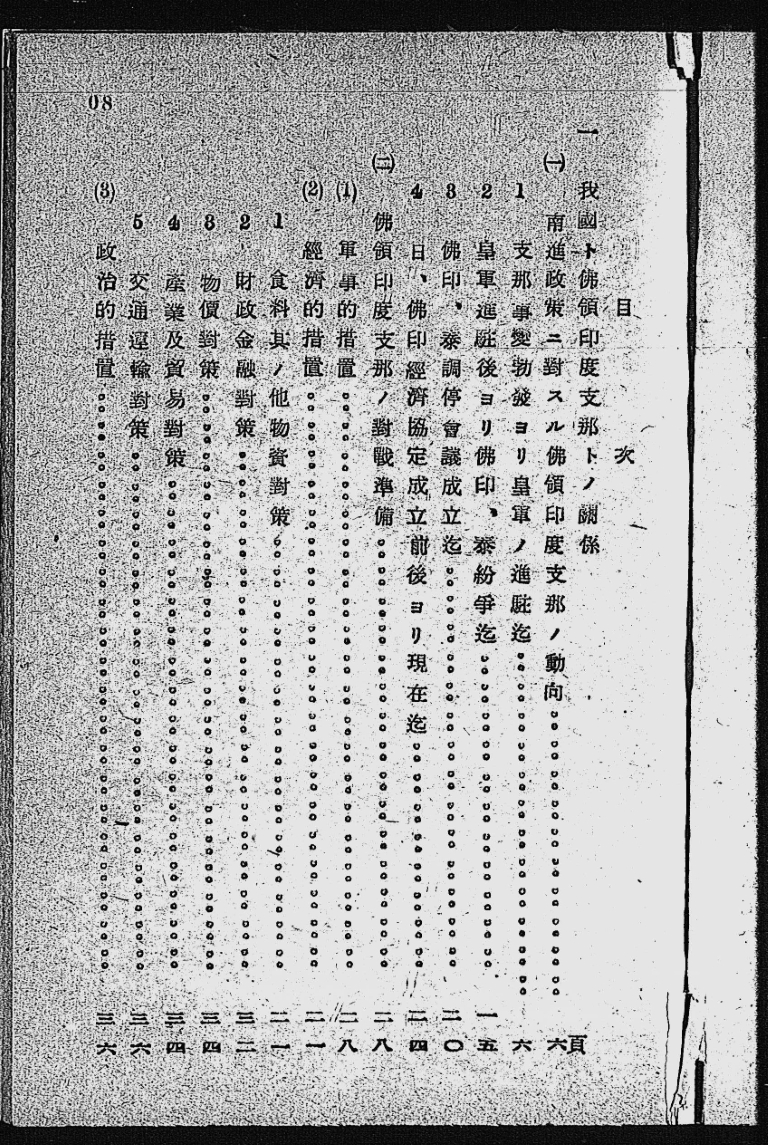 目次
一 我國ト佛領印度支那トノ關係
頁
㈠ 南進政策ニ對スル佛領印度支那ノ動向。。。。。。。。。。六
1 支那事變勃發ヨリ皇軍ノ進駐迄。。。。。。。。。。六
2 皇軍進駐後ヨリ佛印、泰紛爭迄。。。。。。。。。。一五
3 佛印、泰調停會議成立迄。。。。。。。。。。二〇
4 日、佛印經濟協定成立前後ヨリ現在迄。。。。。。。。。。二四
㈡ 佛領印度支那ノ對戰準備。。。。。。。。。。二八
(1) 軍事的措置。。。。。。。。。。二八
(2) 經濟的措置。。。。。。。。。。二一
1 食料其ノ他物資對策。。。。。。。。。。二一
2 財政金融對策。。。。。。。。。。三二
3 物價對策。。。。。。。。。。三四
4 產業及貿易對策。。。。。。。。。。三四
5 交通運輸對策。。。。。。。。。。三六
(3) 政治的措置。。。。。。。。。。三六
08